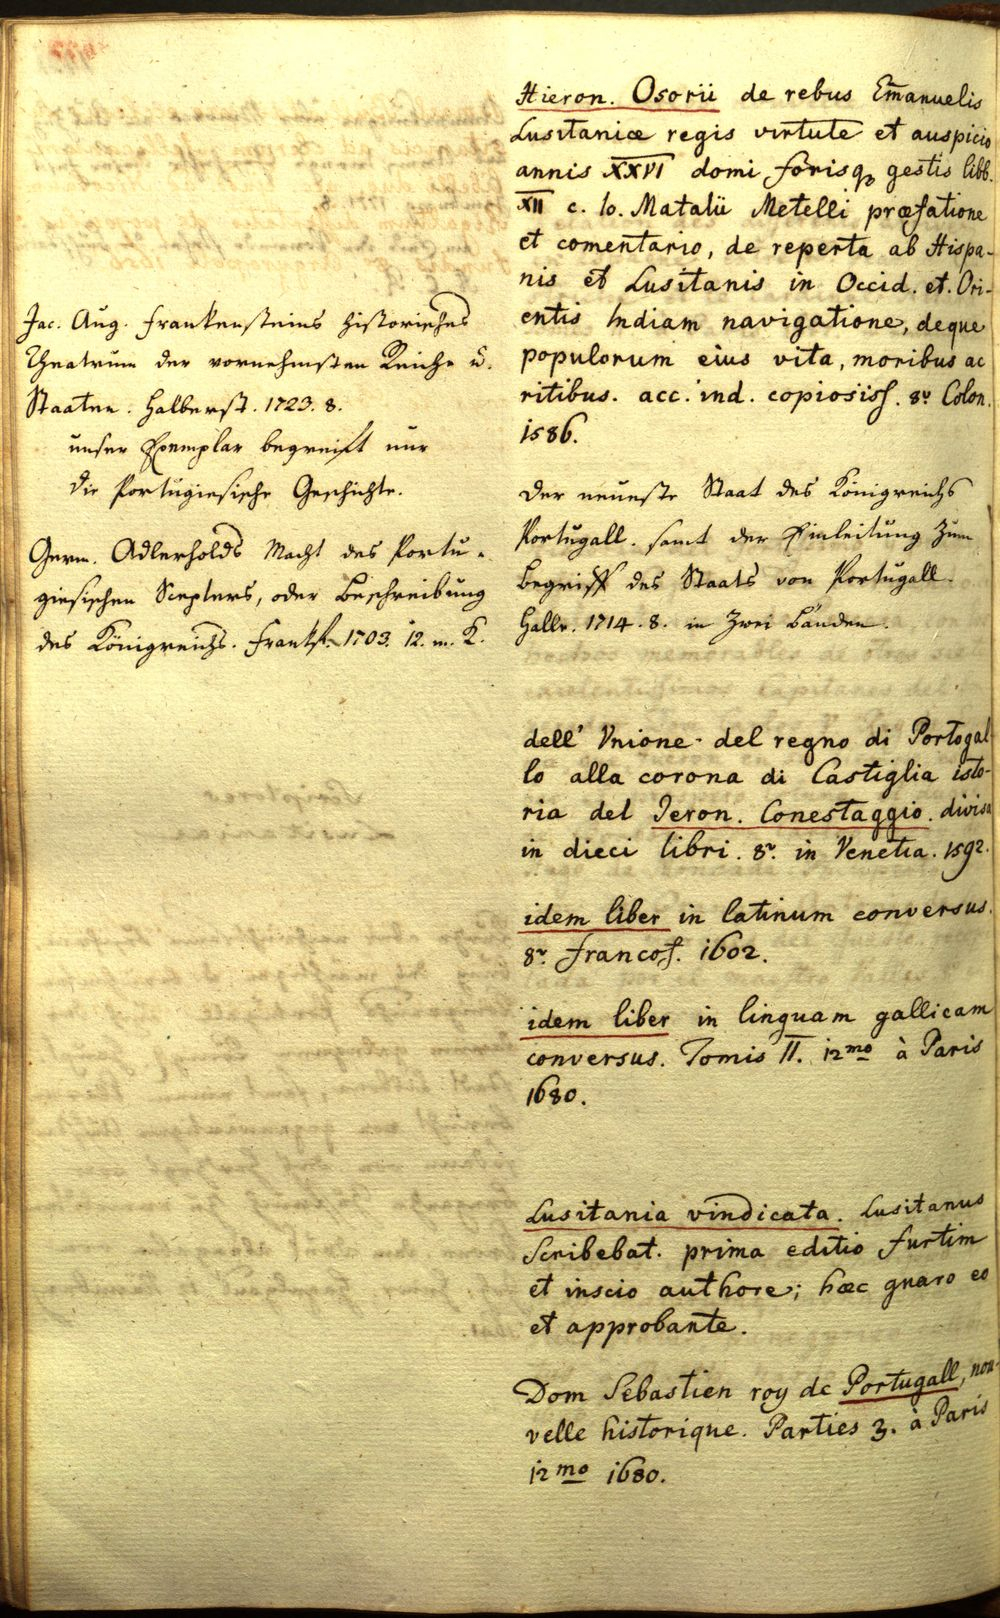 Jac. Aug. Frankensteins historisches
Theatrum der vornehmsten Reiche u.
Staaten. Halberst. 1723. 8.
unser Exemplar begreift nur
die Portugiesische Geschichte.
Germ. Adlerholds Macht des Portu-
giesischen Scepters, oder Beschreibung
des Königreichs. Frankf. 1703. 12. m. K.
Hieron. Osorii de rebus Em̃anuelis
Lusitaniæ regis virtute et auspicio
annis XXVI domi forisq₃ gestis libb.
XII c. Io. Matalii Metelli præfatione
et comentario, de reperta ab Hispa-
nis et Lusitanis in Occid. et. Ori-
entis Indiam navigatione, deque
populorum eius vita, moribus ac
ritibus. acc. ind. copiosiss. 8v Colon.
1586.
Der neueste Staat des Königreichs
Portugall. samt der Einleitung zum
Begriff des Staats von Portugall.
Halle. 1714. 8. in zwei Bänden.
dell' Vnione del regno di Portogal-
lo alla corona di Castiglia isto-
ria del Ieron. Conestaggio. divisa
in dieci libri. 8v. in Venetia. 1592.
idem liber in latinum conversus.
8v. Francof. 1602.
idem liber in linguam gallicam
conversus. Tomis II. 12mo à Paris
1680.
Lusitania vindicata. Lusitanus
Scribebat. prima editio furtim
et inscio authore; hæc gnaro eo
et approbante.
Dom Sebastien roy de Portugall, nou-
velle historique. Parties 3. à Paris
12mo 1680.